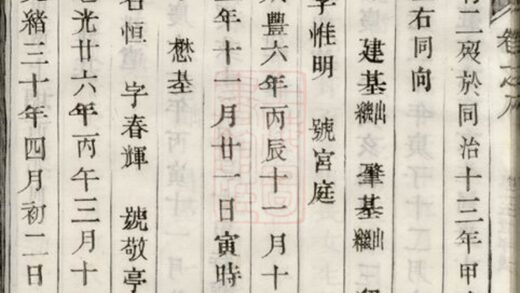 有二歿於同治十三年甲
右同向
建基 肇基
字惟明 號宮庭
咸豐六年丙辰十一月十
年十一月廿一日寅時
懋基
名恒 字春輝 號敬亭
道光廿六年丙午三月十
光緒三十年四月初二日